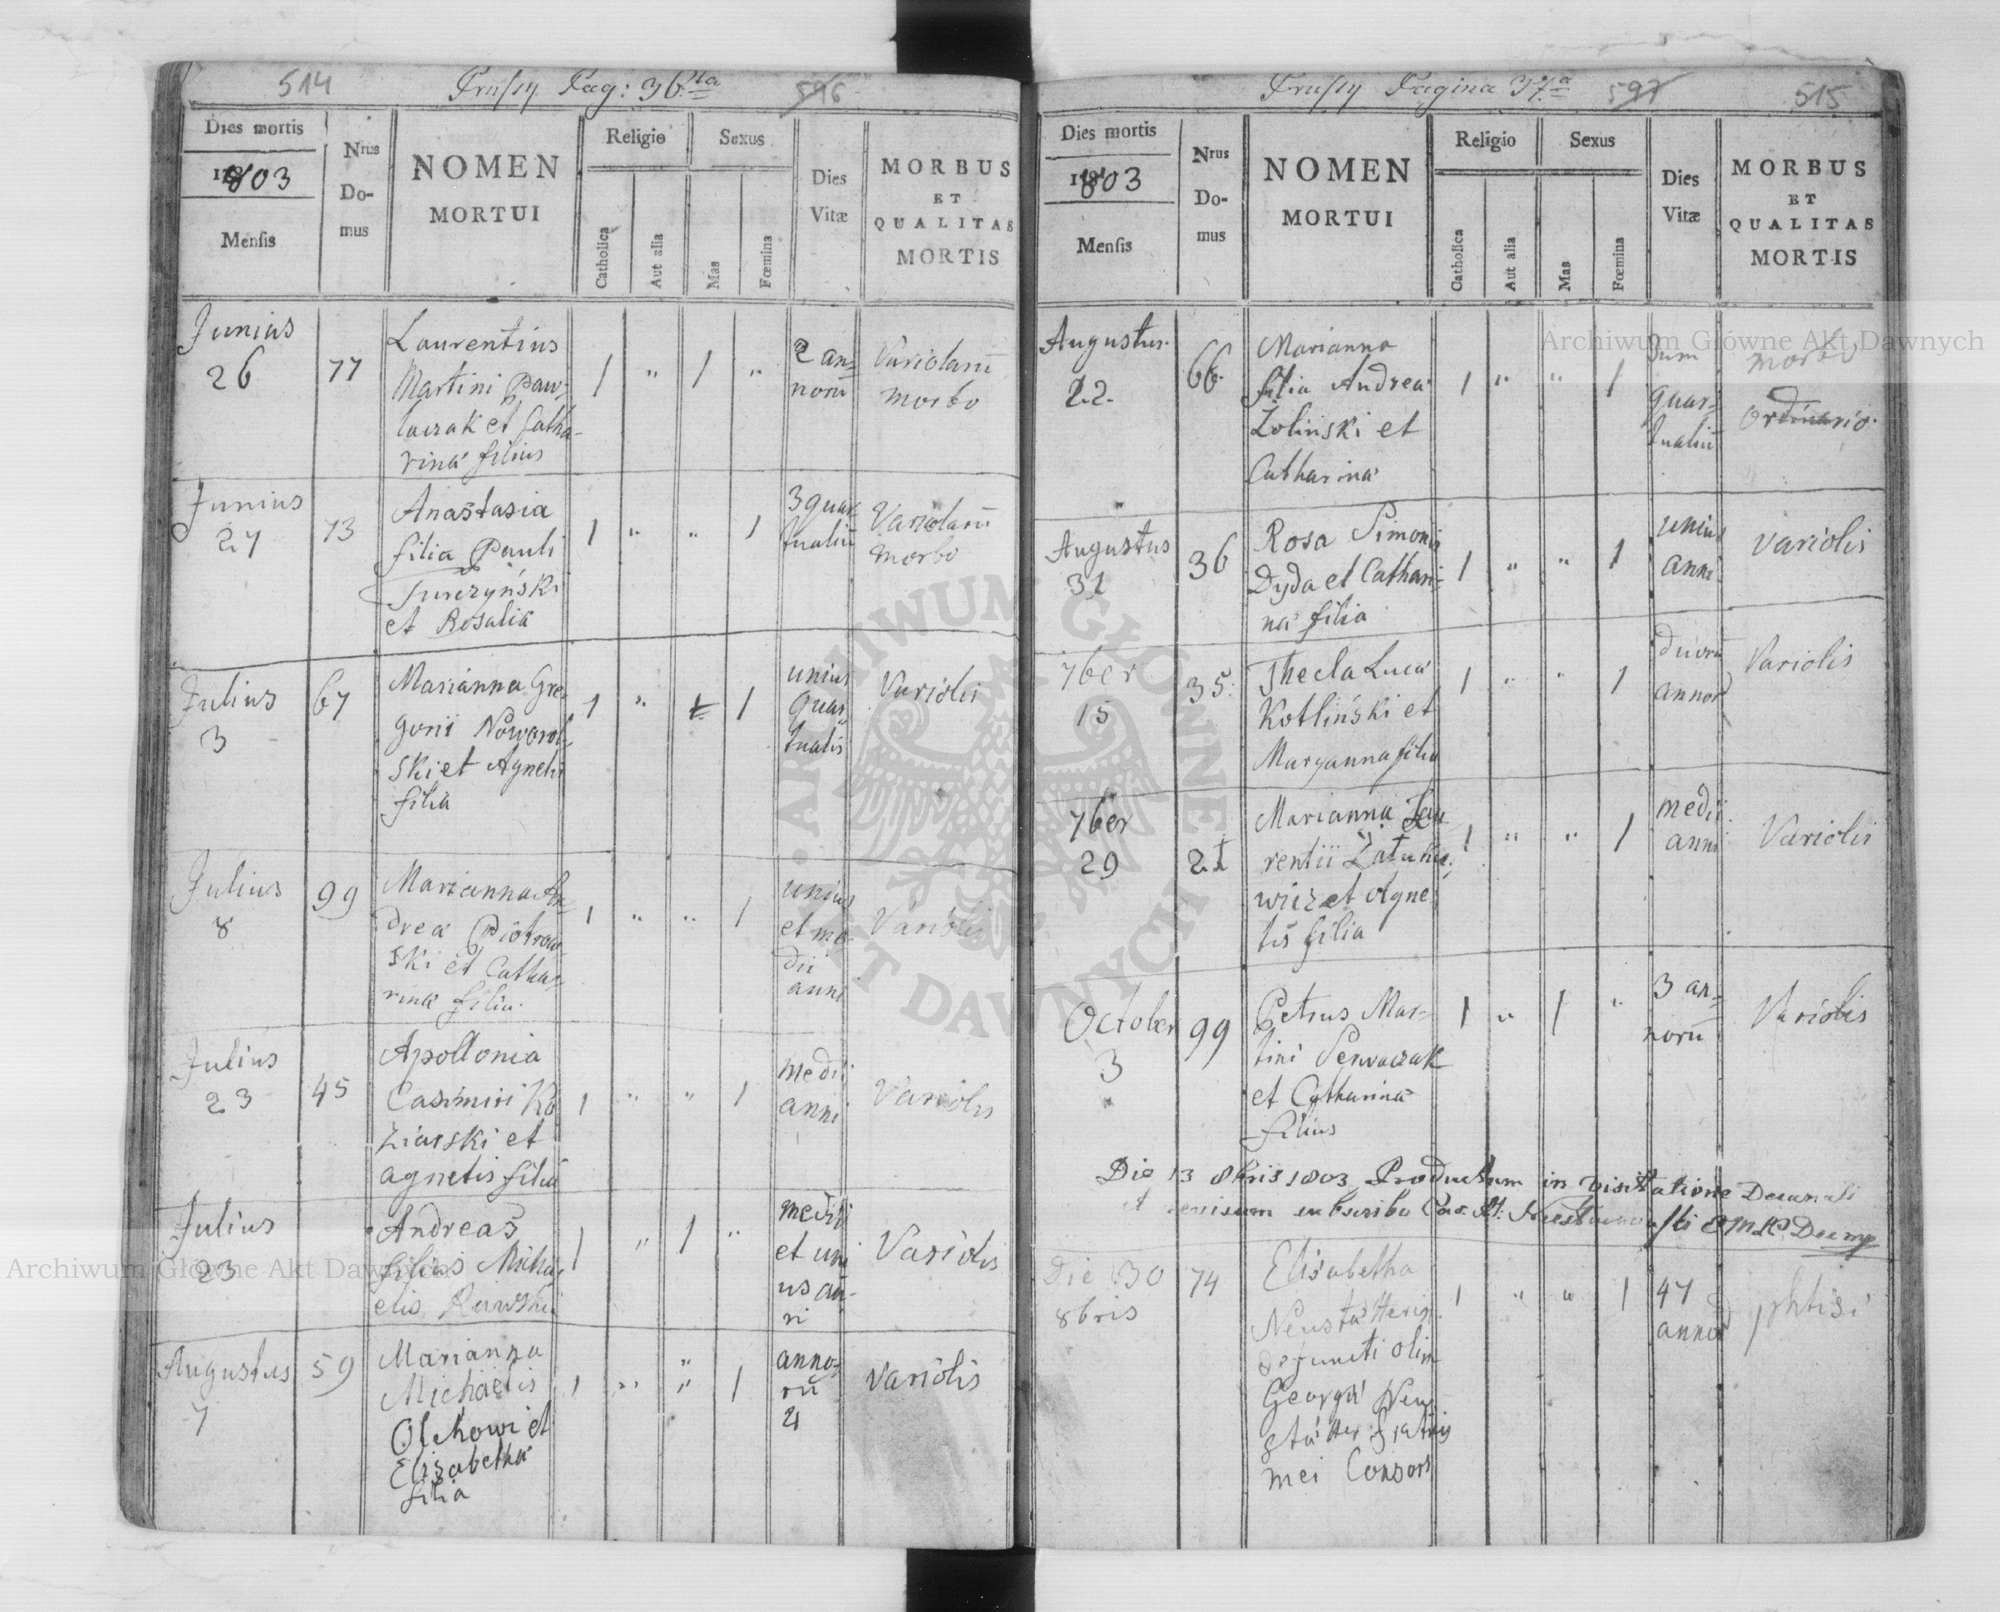 514
Prussy Pag: 36ta
596
Dies mortis
1803
Mensis
Nrus
Do-
mus
NOMEN
MORTUI
Religio
Catholica
Aut alia
Sexus
Mas
Fœmina
Dies
Vitæ
MORBUS
ET
QUALITAS
MORTIS
Junius
26
77
Laurentius
Martini Paw-
laczak et Catha-
rina filius
1 " 1 "
2 an-
noru
Variolaru
morbo
Junius
27
73
Anastasia
filia Pauli
Jurczyński
et Rosalia
1 " " 1
3 quar
tualiu
Variolaru
morbo
Julius
3
67
Marianna Gre-
gorii Noworol-
ski et Agnetis
filia
1 " 1
unius
quar
tualis
Variolis
Julius
8
99
Marianna An-
drea Piotrow-
ski et Catha-
rina filia
1 " " 1
unius
et me-
dii
anni
Variolis
Julius
23
45
Apollonia
Casimiri Ko
ziarski et
agnetis filia
1 " " 1
medii
anni
Variolis
Julius
23
Andreas
filius Micha-
elis Rawski
1 " 1 "
medii
et uni
us an-
ni
Variolis
Augustus
7
59
Marianna
Michaelis
Olchowi et
Elisabetha
filia
1 " " 1
anno-
ru
4
Variolis
Prussy Pagina 37a
597
515
Dies mortis
1803
Mensis
Nrus
Do-
mus
NOMEN
MORTUI
Religio
Catholica
Aut alia
Sexus
Mas
Fœmina
Dies
Vitæ
MORBUS
ET
QUALITAS
MORTIS
Augustus
22
66
Marianna
filia Andrea
Żoliński et
Catharina
1 " " 1
quar-
tualiu
morbo
ordinario
Augustus
31
36
Rosa Simonis
Dyda et Cathari-
na filia
1 " " 1
unius
anni
variolis
7ber
15
35
Thecla Luca
Kotliński et
Maryanna filia
1 " " 1
duoru
annor
Variolis
7ber
29
21
Marianna Lau-
rentii
wicz et Agne-
tis filia
1 " " 1
medii
anni
Variolis
October
3
99
Petrus Mar-
tini
et Catharina
filius
1 " 1 "
3 an-
noru
Variolis
Die 13 8bris 1803 Productum in visitatione Decanali
et revisum subscribo
Die 30
8bris
74
Elisabetha
Neustätterin
defuncti olim
Georgii Neu-
stätter fratris
mei Consors
1 " " 1
47
annor
phtisi
Archiwum Główne Akt Dawnych
Archiwum Główne Akt Dawnych
ARCHIWUM GŁÓWNE AKT DAWNYCH